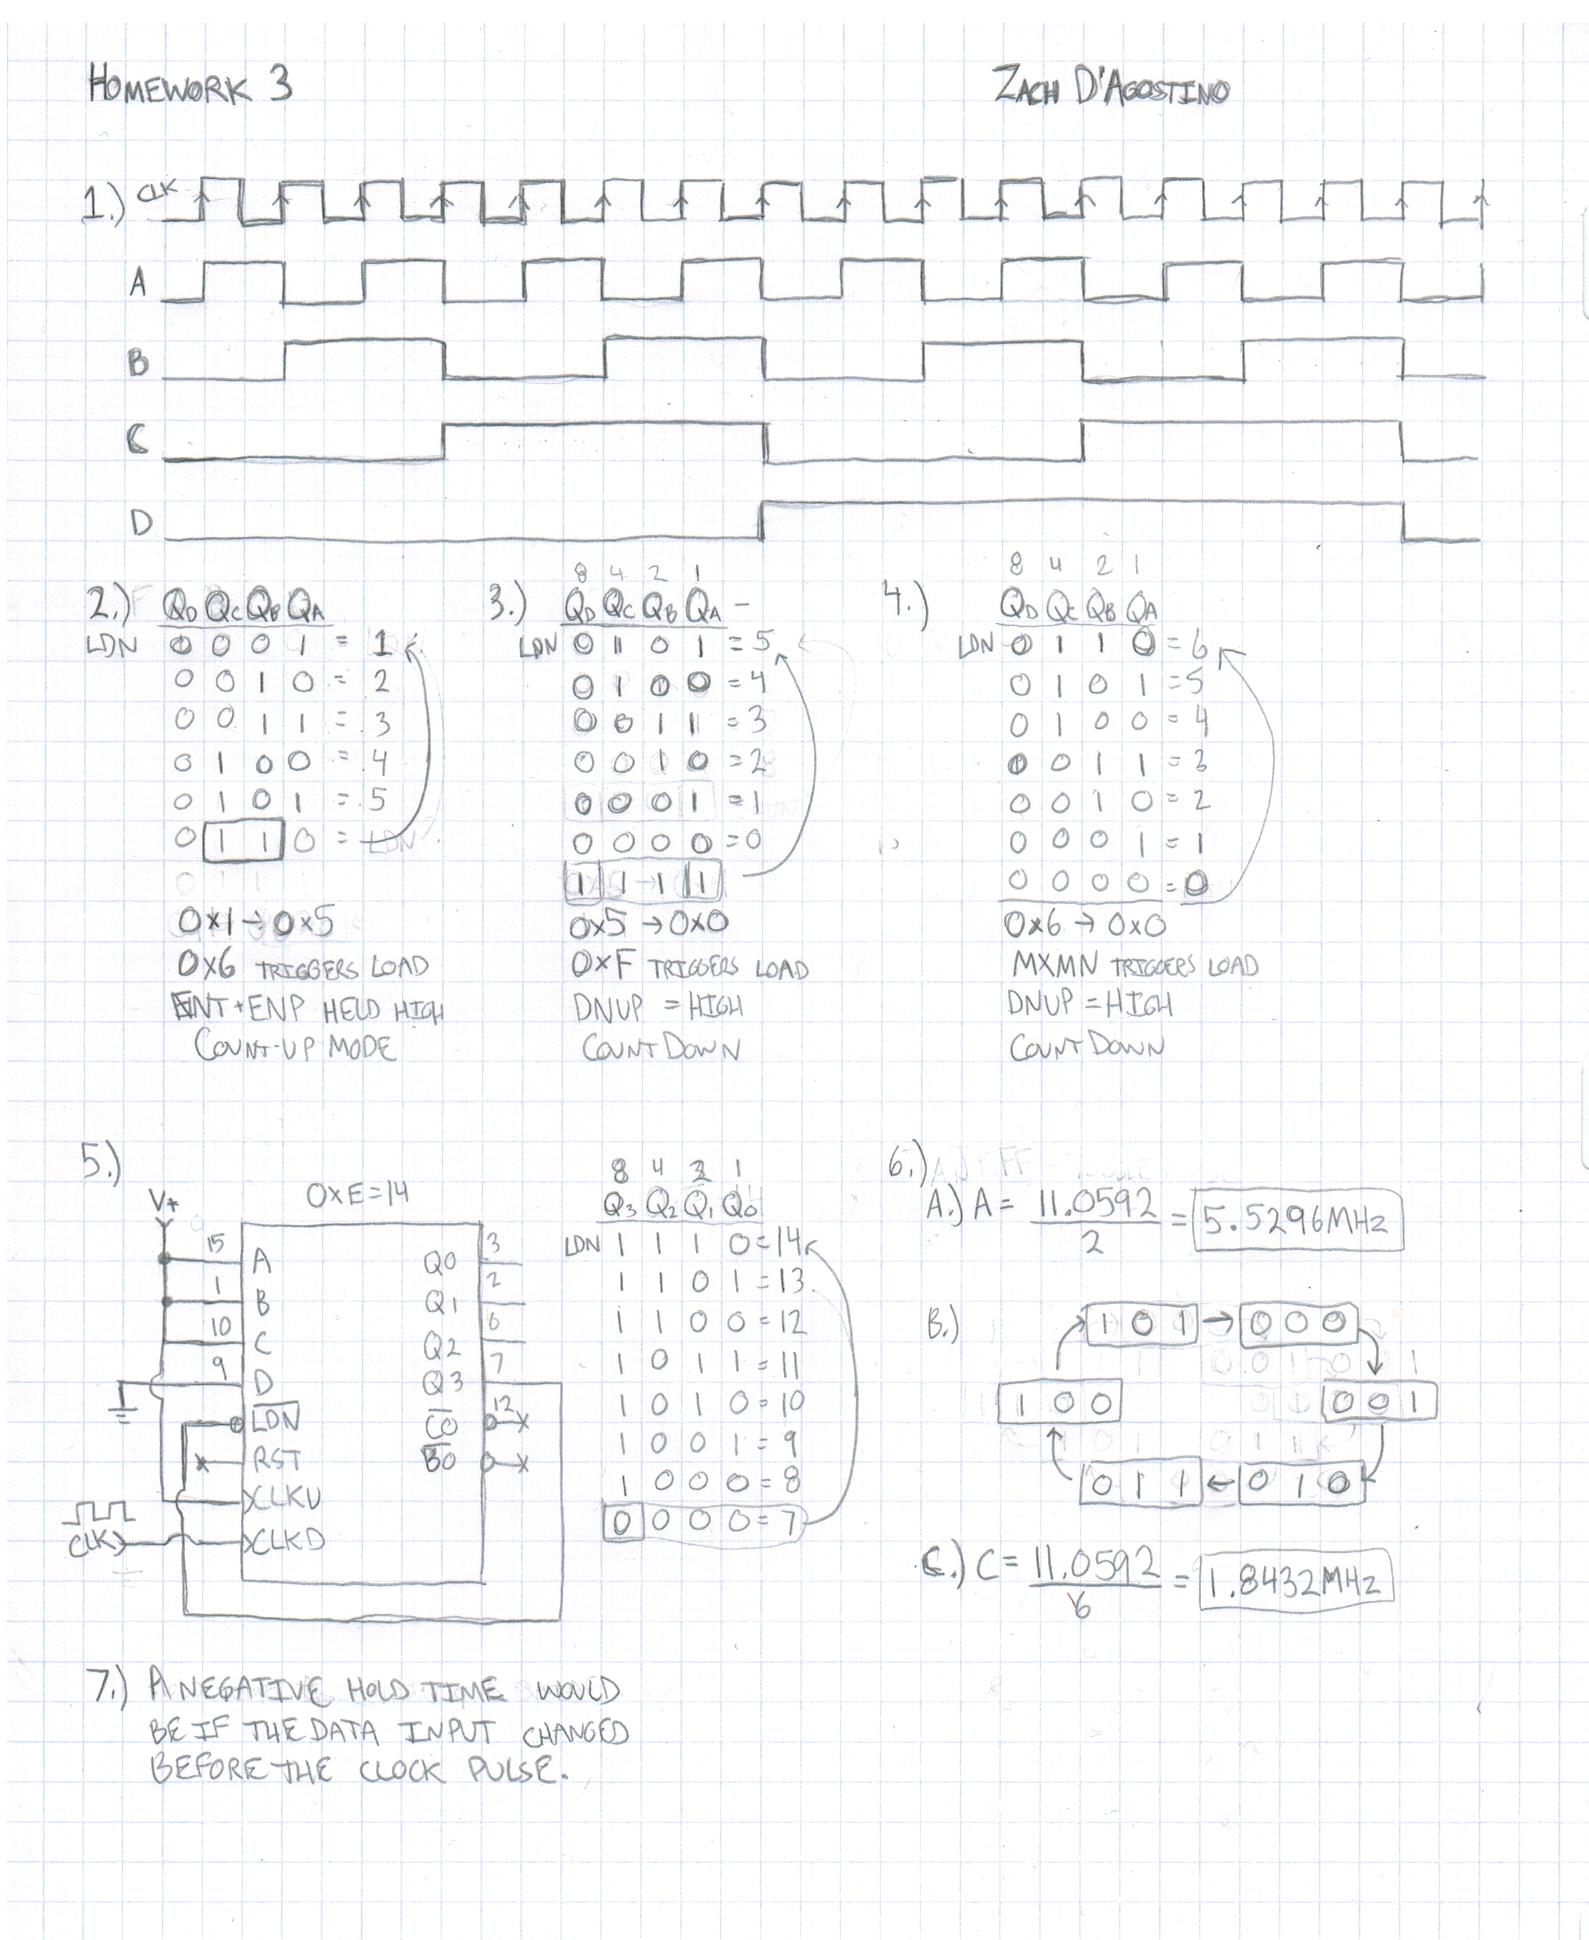 HOMEWORK 3
ZACH D'AGOSTINO
1.) CLK
A
B
C
D
2.) QD QC QB QA
LDN 0 0 0 1 = 1
0 0 1 0 = 2
0 0 1 1 = 3
0 1 0 0 = 4
0 1 0 1 = 5
0 1 1 0 = LDN
0x1 → 0x5
0x6 TRIGGERS LOAD
ENT + ENP HELD HIGH
COUNT-UP MODE
3.) 8 4 2 1
QD QC QB QA -
LDN 0 1 0 1 = 5
0 1 0 0 = 4
0 0 1 1 = 3
0 0 1 0 = 2
0 0 0 1 = 1
0 0 0 0 = 0
1 1 1 1
0x5 → 0x0
0xF TRIGGERS LOAD
DNUP = HIGH
COUNT DOWN
4.) 8 4 2 1
QD QC QB QA
LDN 0 1 1 0 = 6
0 1 0 1 = 5
0 1 0 0 = 4
0 0 1 1 = 3
0 0 1 0 = 2
0 0 0 1 = 1
0 0 0 0 = 0
0x6 → 0x0
MXMN TRIGGERS LOAD
DNUP = HIGH
COUNT DOWN
5.)
V+
0xE = 14
15 A Q0 3
1 B Q1 2
10 C Q2 6
9 D Q3 7
LDN CO 12
RST BO
CLKU
CLK CLKD
8 4 2 1
Q3 Q2 Q1 Q0
LDN 1 1 1 0 = 14
1 1 0 1 = 13
1 1 0 0 = 12
1 0 1 1 = 11
1 0 1 0 = 10
1 0 0 1 = 9
1 0 0 0 = 8
0 0 0 0 = 7
6.)
A.) A = 11.0592 / 2 = 5.5296MHz
B.) 1 0 1 → 0 0 0
1 0 0 0 0 1
0 1 1 ← 0 1 0
C.) C = 11.0592 / 6 = 1.8432MHz
7.) A NEGATIVE HOLD TIME WOULD
BE IF THE DATA INPUT CHANGED
BEFORE THE CLOCK PULSE.